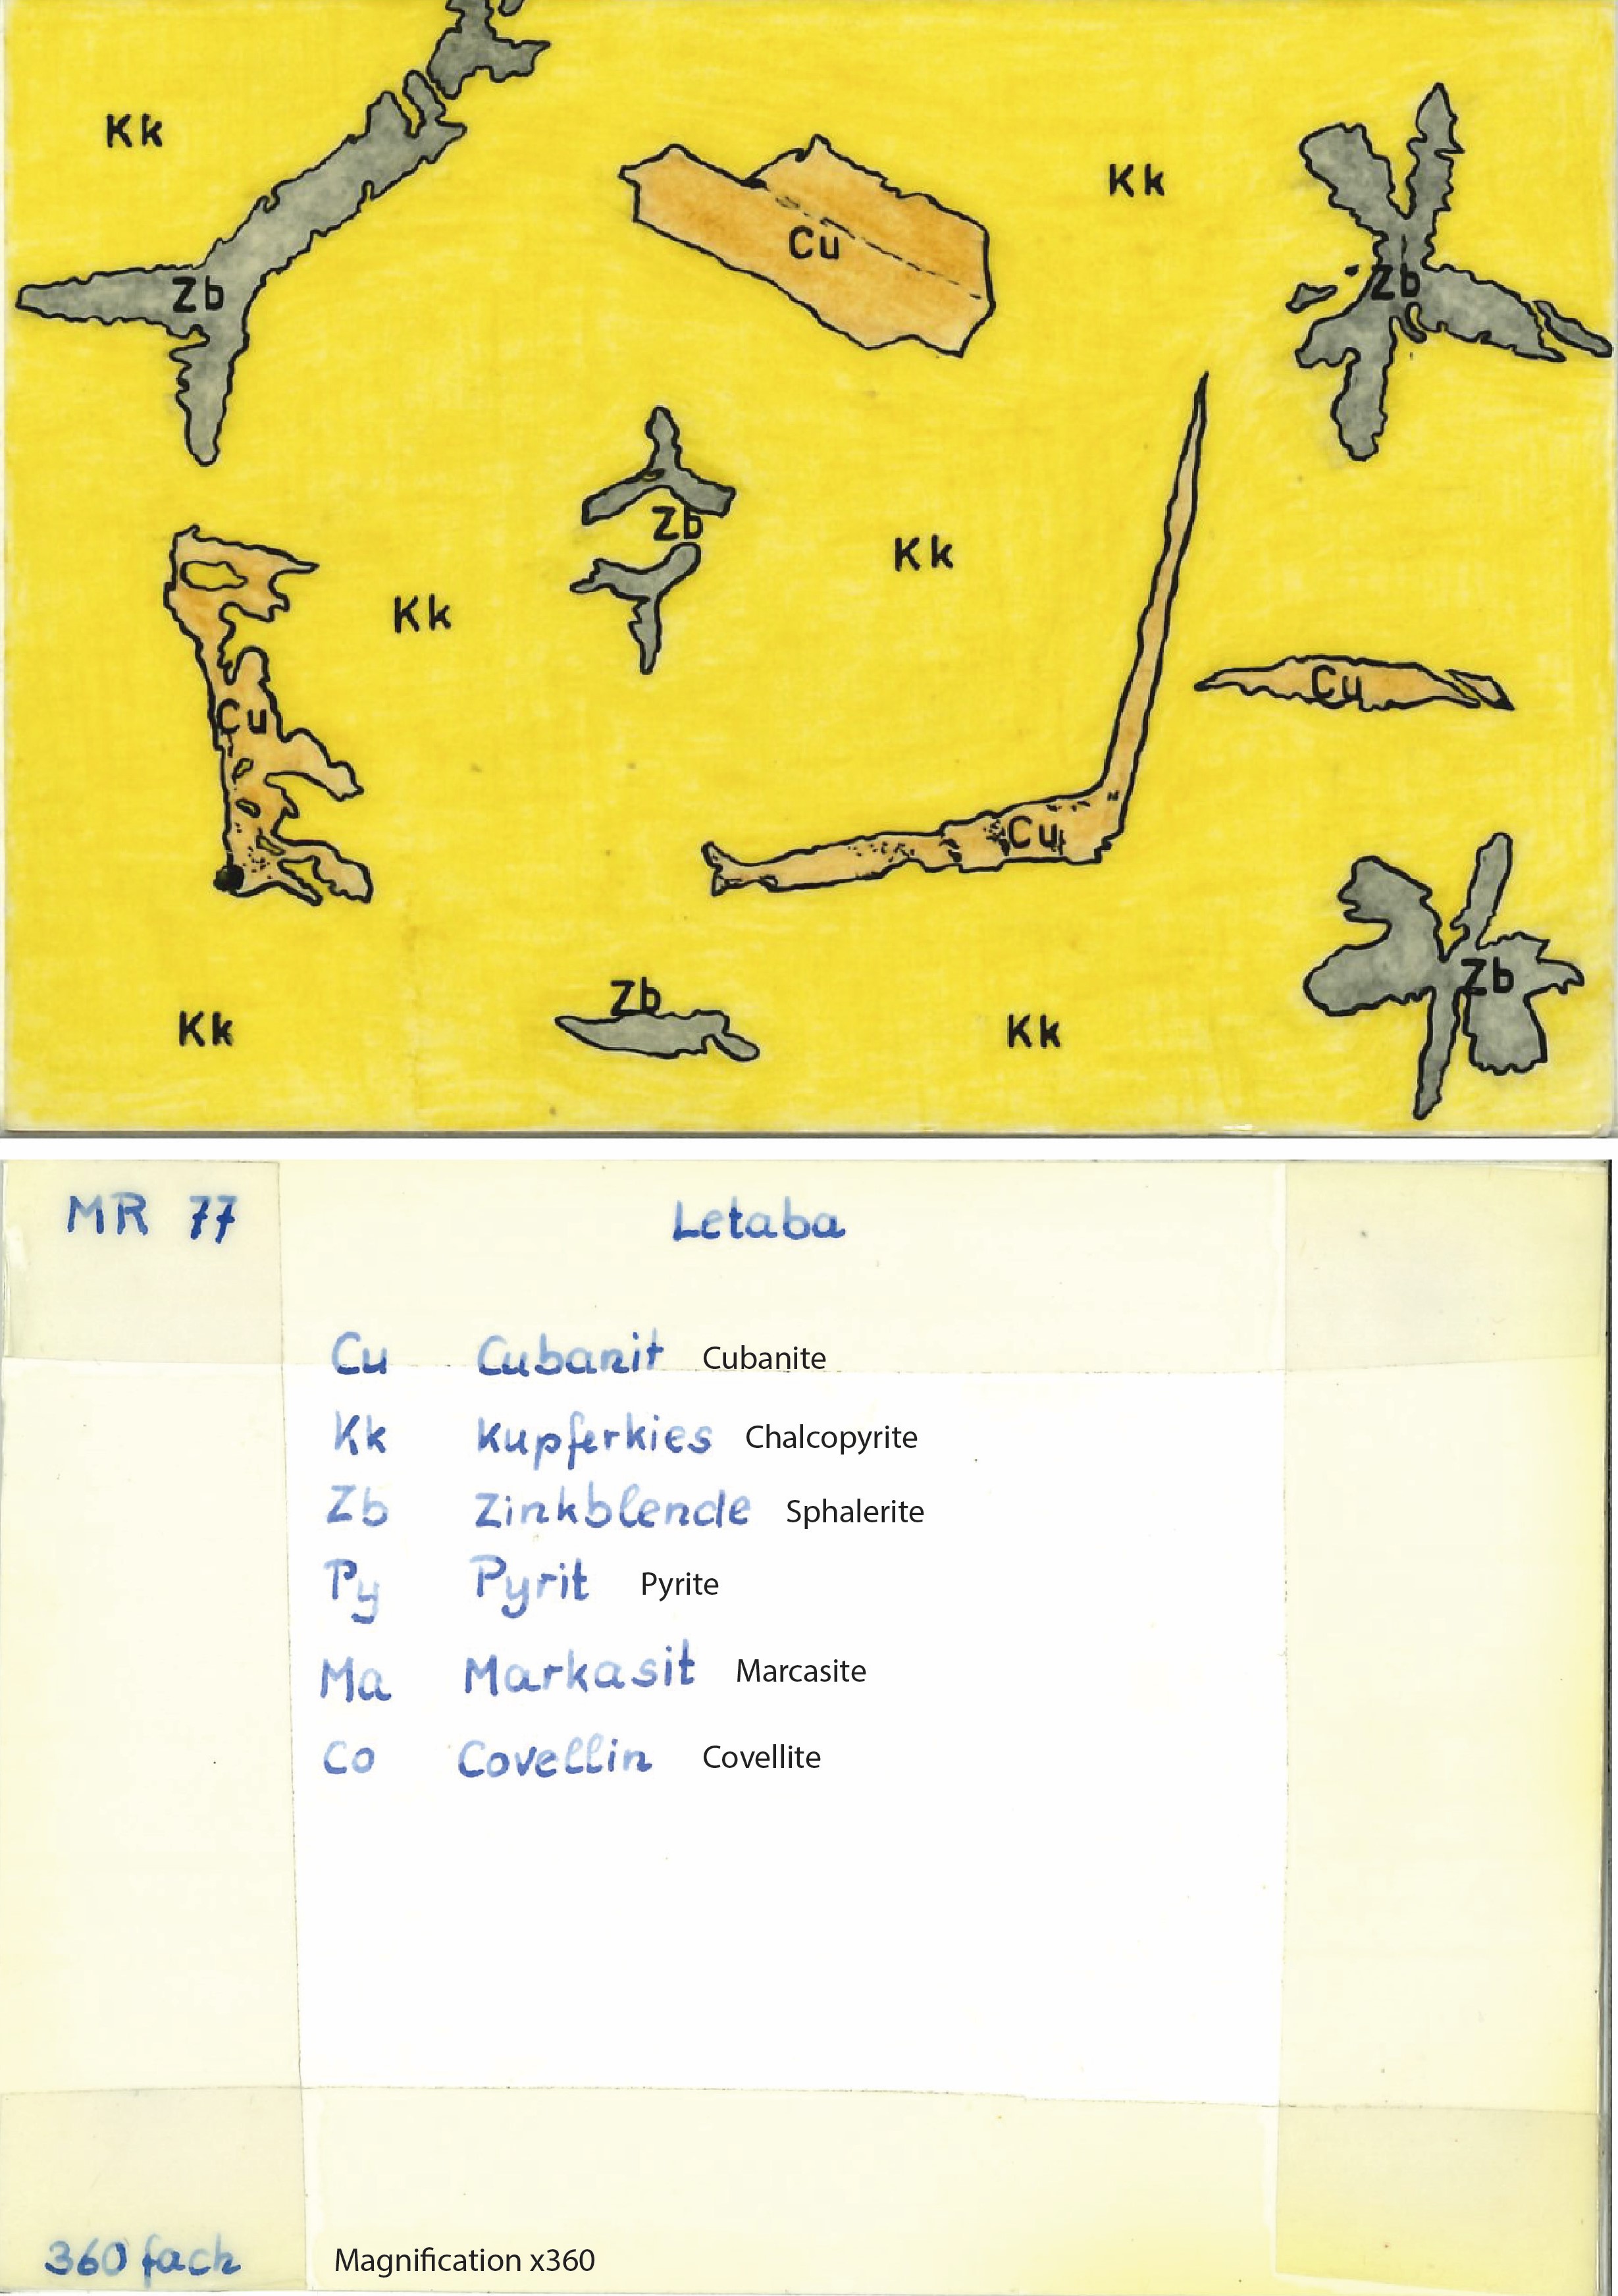 Kk
Kk
Cu
Zb
Zb
Zb
Kk
Kk
Cu
Cu
Cu
Zb
Zb
Kk
Kk
MR 77 Letaba
Cu Cubanit Cubanite
Kk Kupferkies Chalcopyrite
Zb Zinkblende Sphalerite
Py Pyrit Pyrite
Ma Markasit Marcasite
Co Covellin Covellite
360 fach Magnification x360